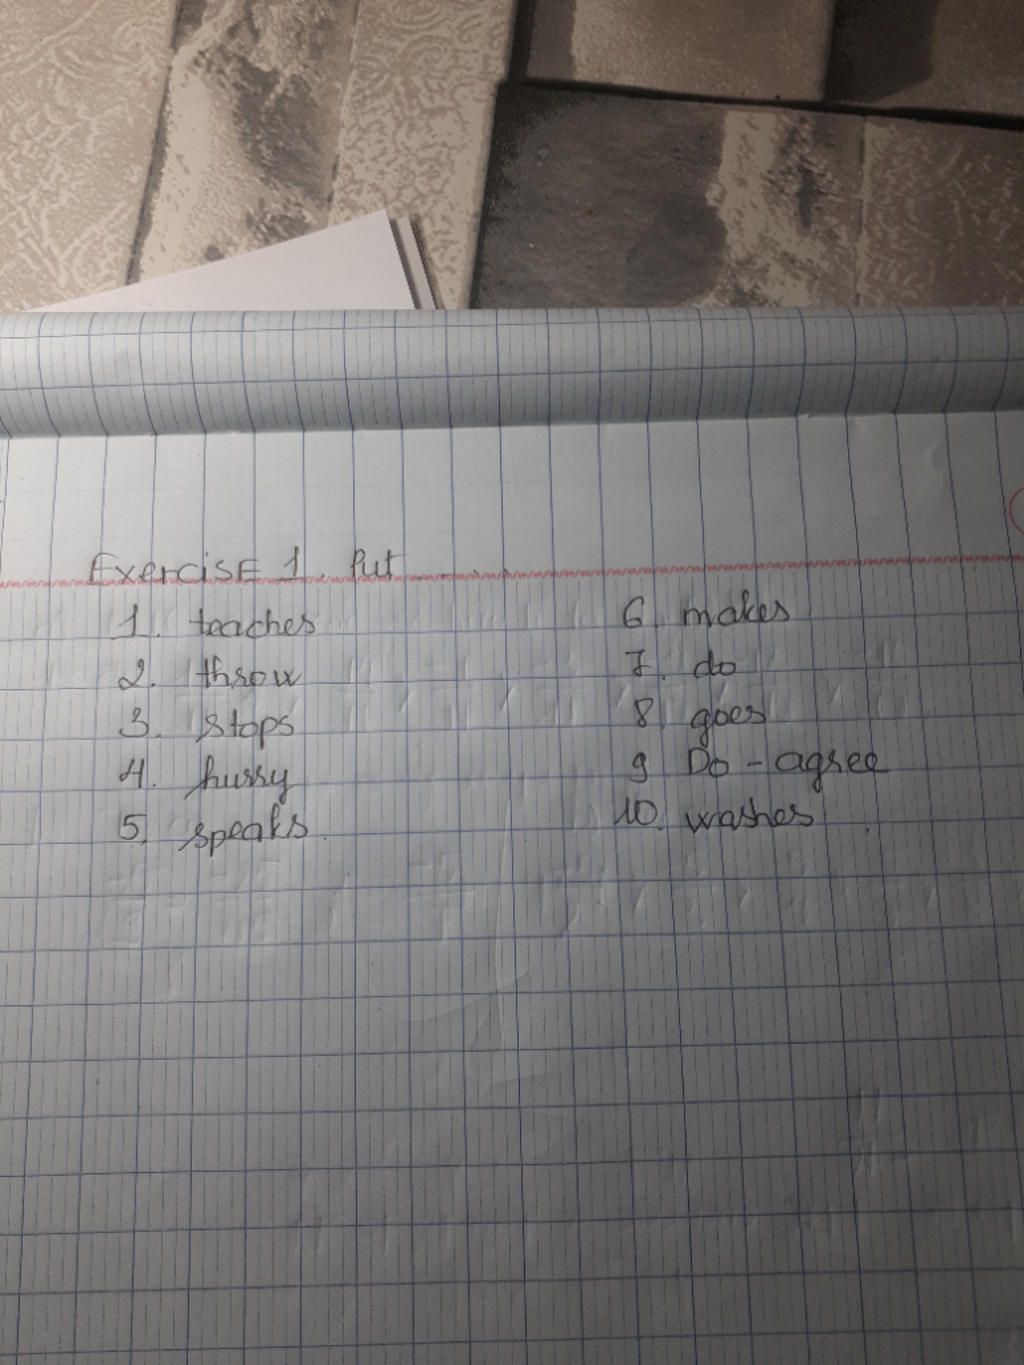 Exercise 1. Put
1. teaches
2. throw
3. stops
4. hurry
5. speaks.
6. makes
7. do
8. goes
9. Do - agree
10. washes.